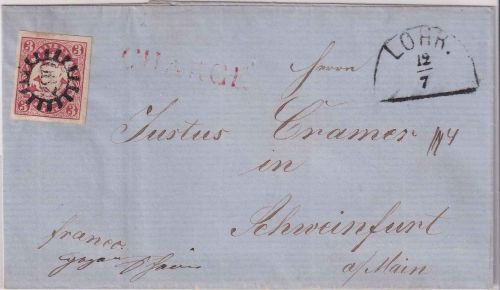 3 3
3 3
CHARGÉ
LOHR.
12
7
Herrn
Justus Cramer
in
Schweinfurt
a/Main
franco.
gegen Schein